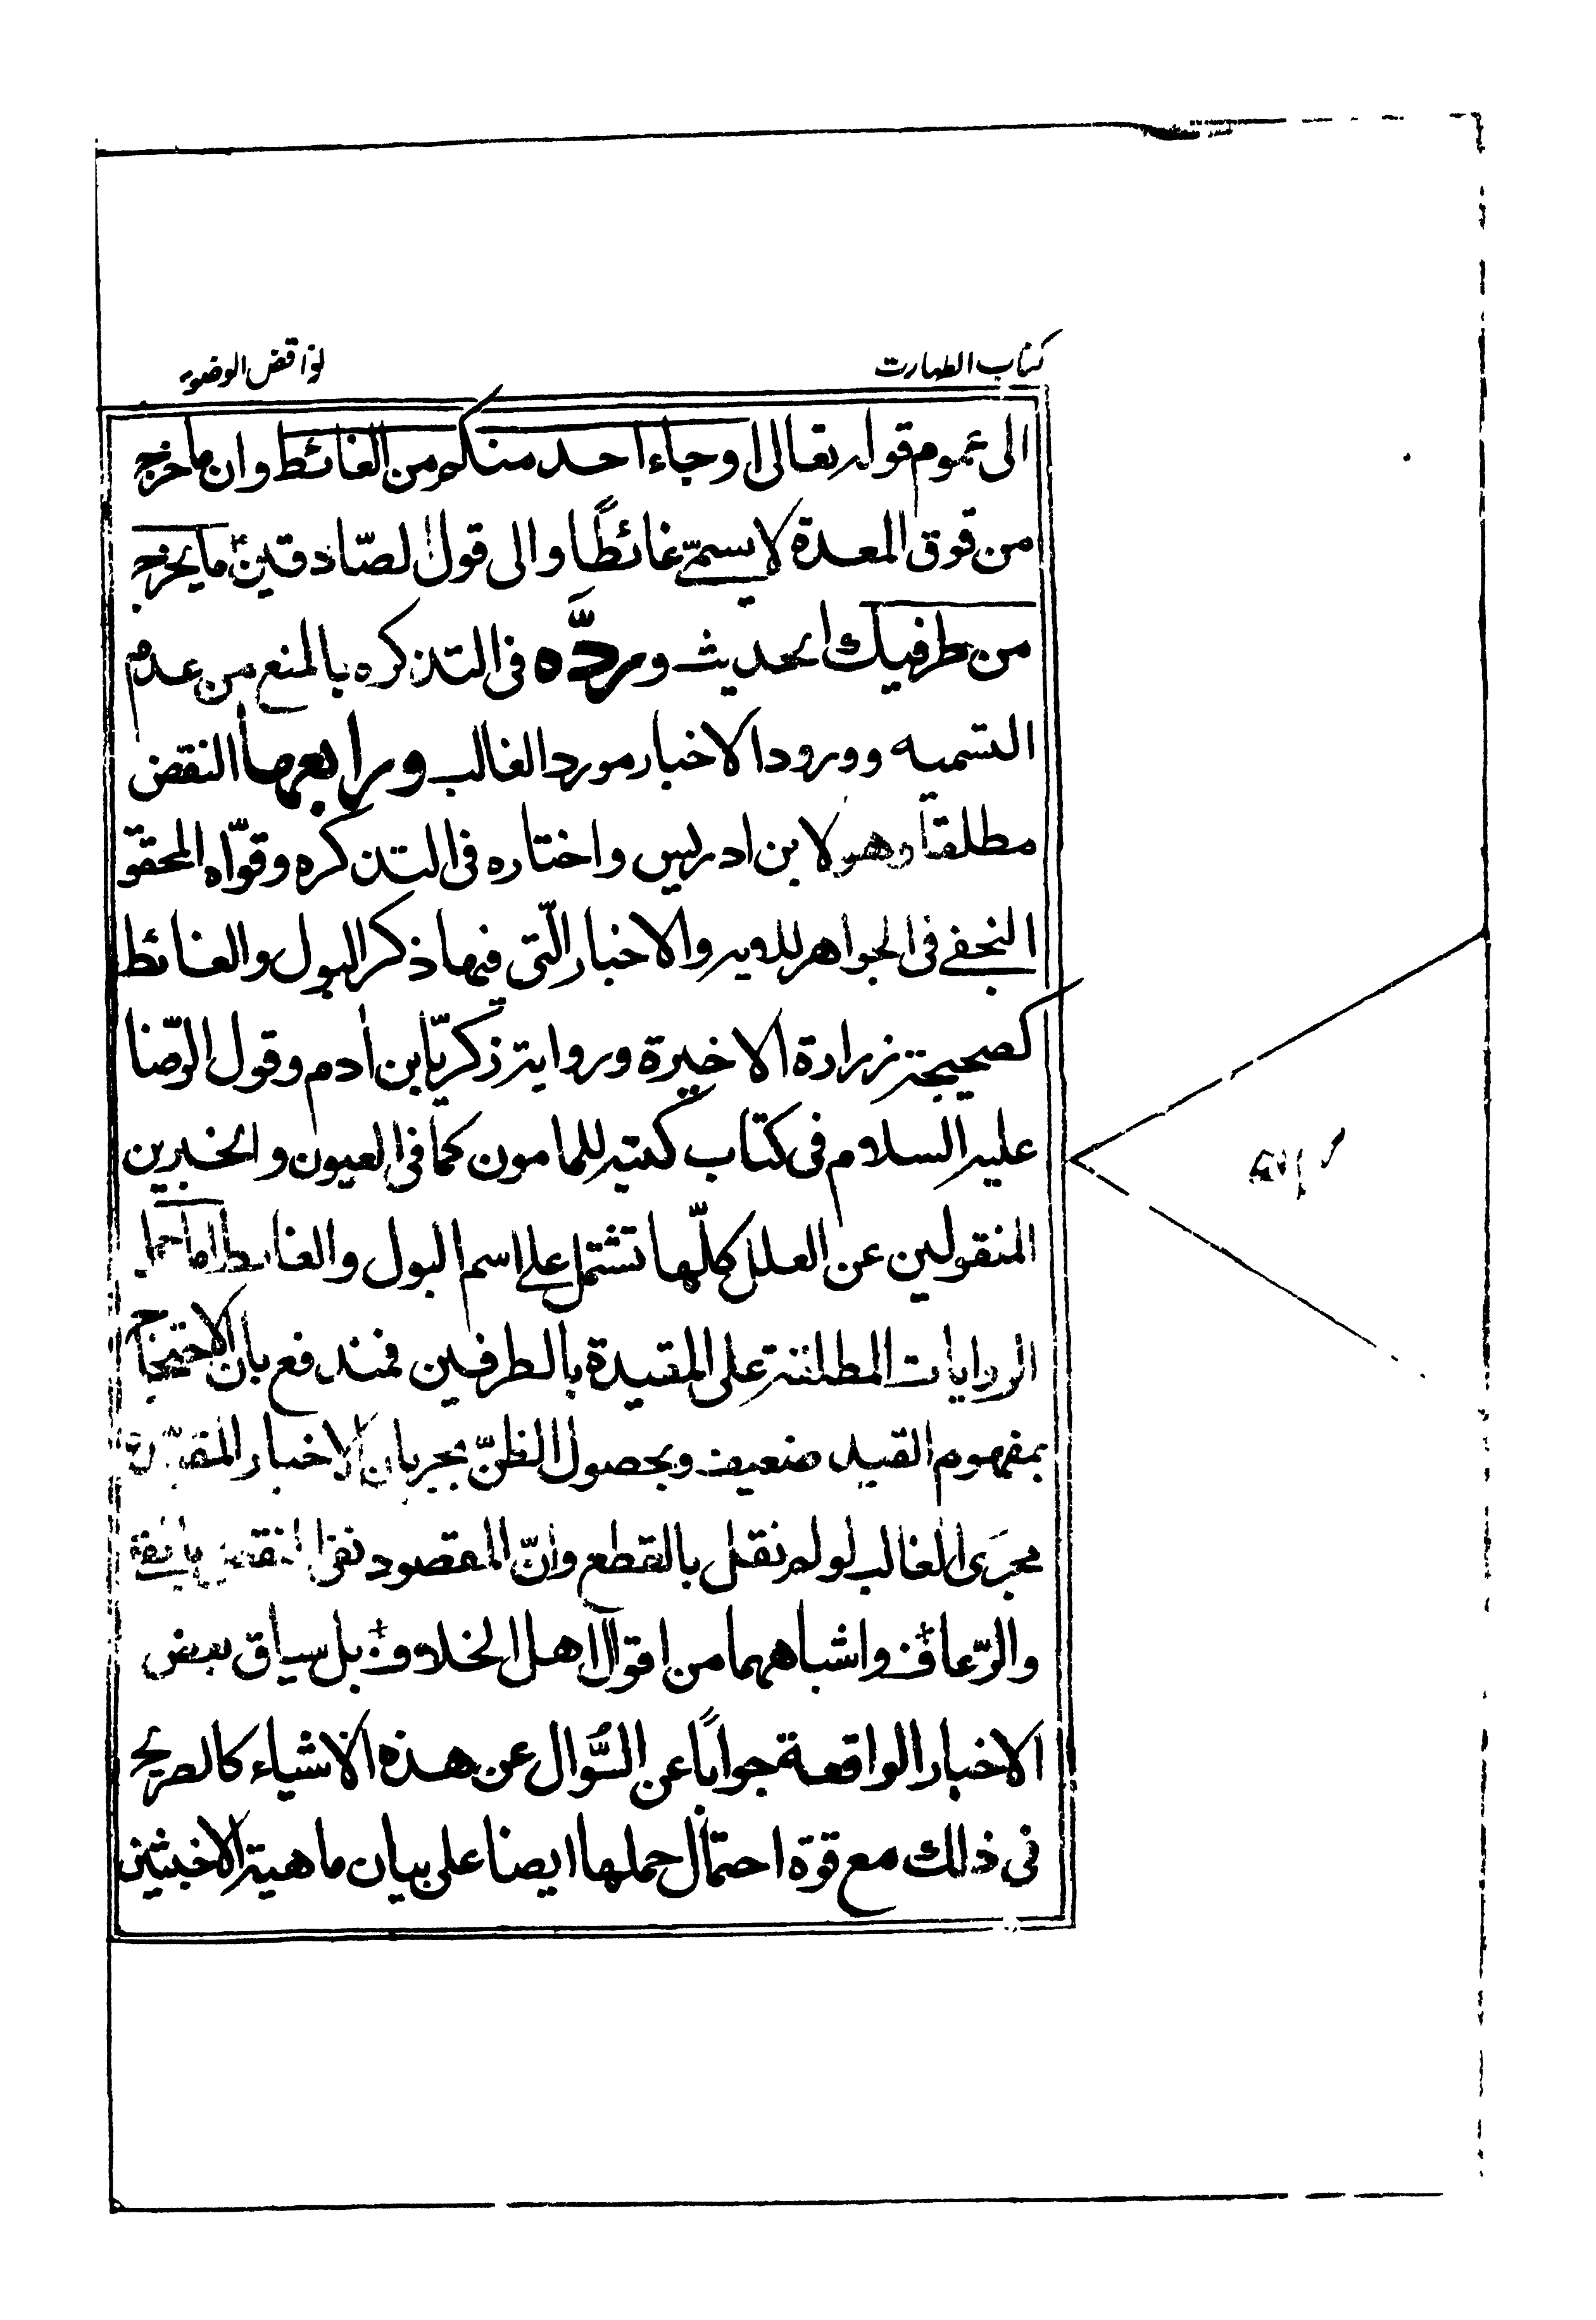 كتاب الطهارت
نواقض الوضوء
الى عموم قوله تعالى او جاء احد منكم من الغائط وان ما خرج
من فوق المعدة لا يسمّى غائطًا والى قول الصّادقين ما يخرج
من طرفيك الحديث وردّه فى التذكره بالمنع من عدم
التسميه وورود الاخبار مورد الغالب ورابعها النقض
مطلقا وهو لابن ادريس واختاره فى التذكره وقوّاه المحقق
النجفى فى الجواهر للايه والاخبار الّتى فيها ذكر البول والغائط
كصحيحة زرارة الاخيرة ورواية زكريّا بن ادم وقول الرّضا
عليه السلام فى كتاب كتبه للمامون كما فى العيون والخبرين
المنقولين عن العلل كلّها تشتمل على اسم البول والغائط اما حمل
الروايات المطلقة على المقيدة بالطرفين فمندفع بان الاحتجاج
بمفهوم القيد ضعيف وبحصول الظنّ بجريان الاخبار المقيّدة
مجرَى الغالب لو لم نقل بالقطع وانّ المقصود نفى النقض بالقئ
والرّعاف واشباههما من اقوال اهل الخلاف بل سياق بعض
الاخبار الواقعة جوابًا عن السُّوال عن هذه الاشياء كالصريح
فى ذلك مع قوة احتمال حملها ايضا على بيان ماهية الاخبثين